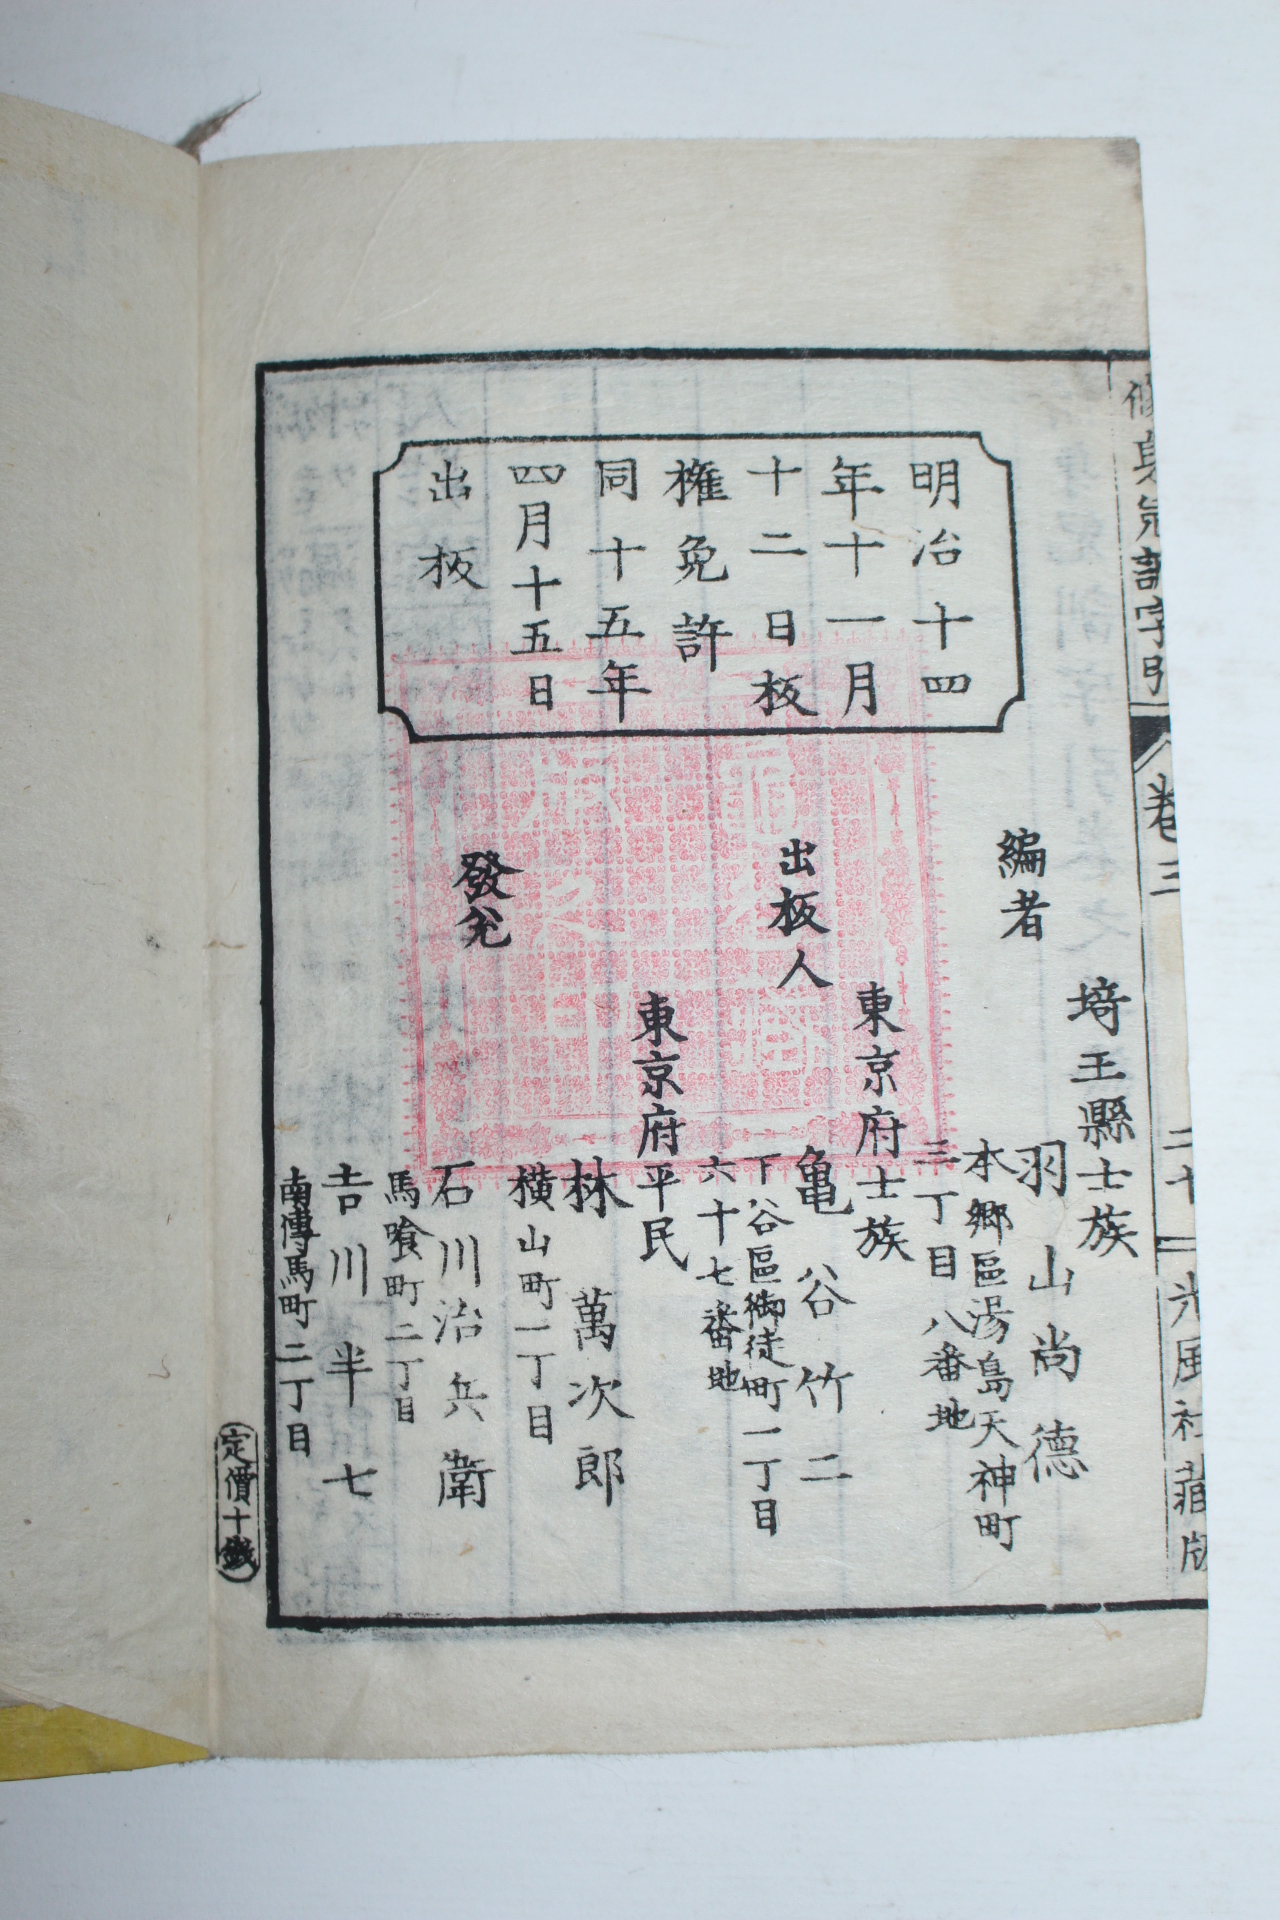 修身児訓字引
卷三
二十
光風社藏版
明治十四
年十一月
十二日板
權免許
同十五年
四月十五日
出板
編者
埼玉縣士族
羽山尚德
本鄉區湯島天神町
三丁目八番地
出板人
東京府士族
亀谷竹二
下谷區御徒町一丁目
六十七番地
發兌
東京府平民
林萬次郎
橫山町一丁目
石川治兵衛
馬喰町二丁目
吉川半七
南傳馬町二丁目
定價十錢